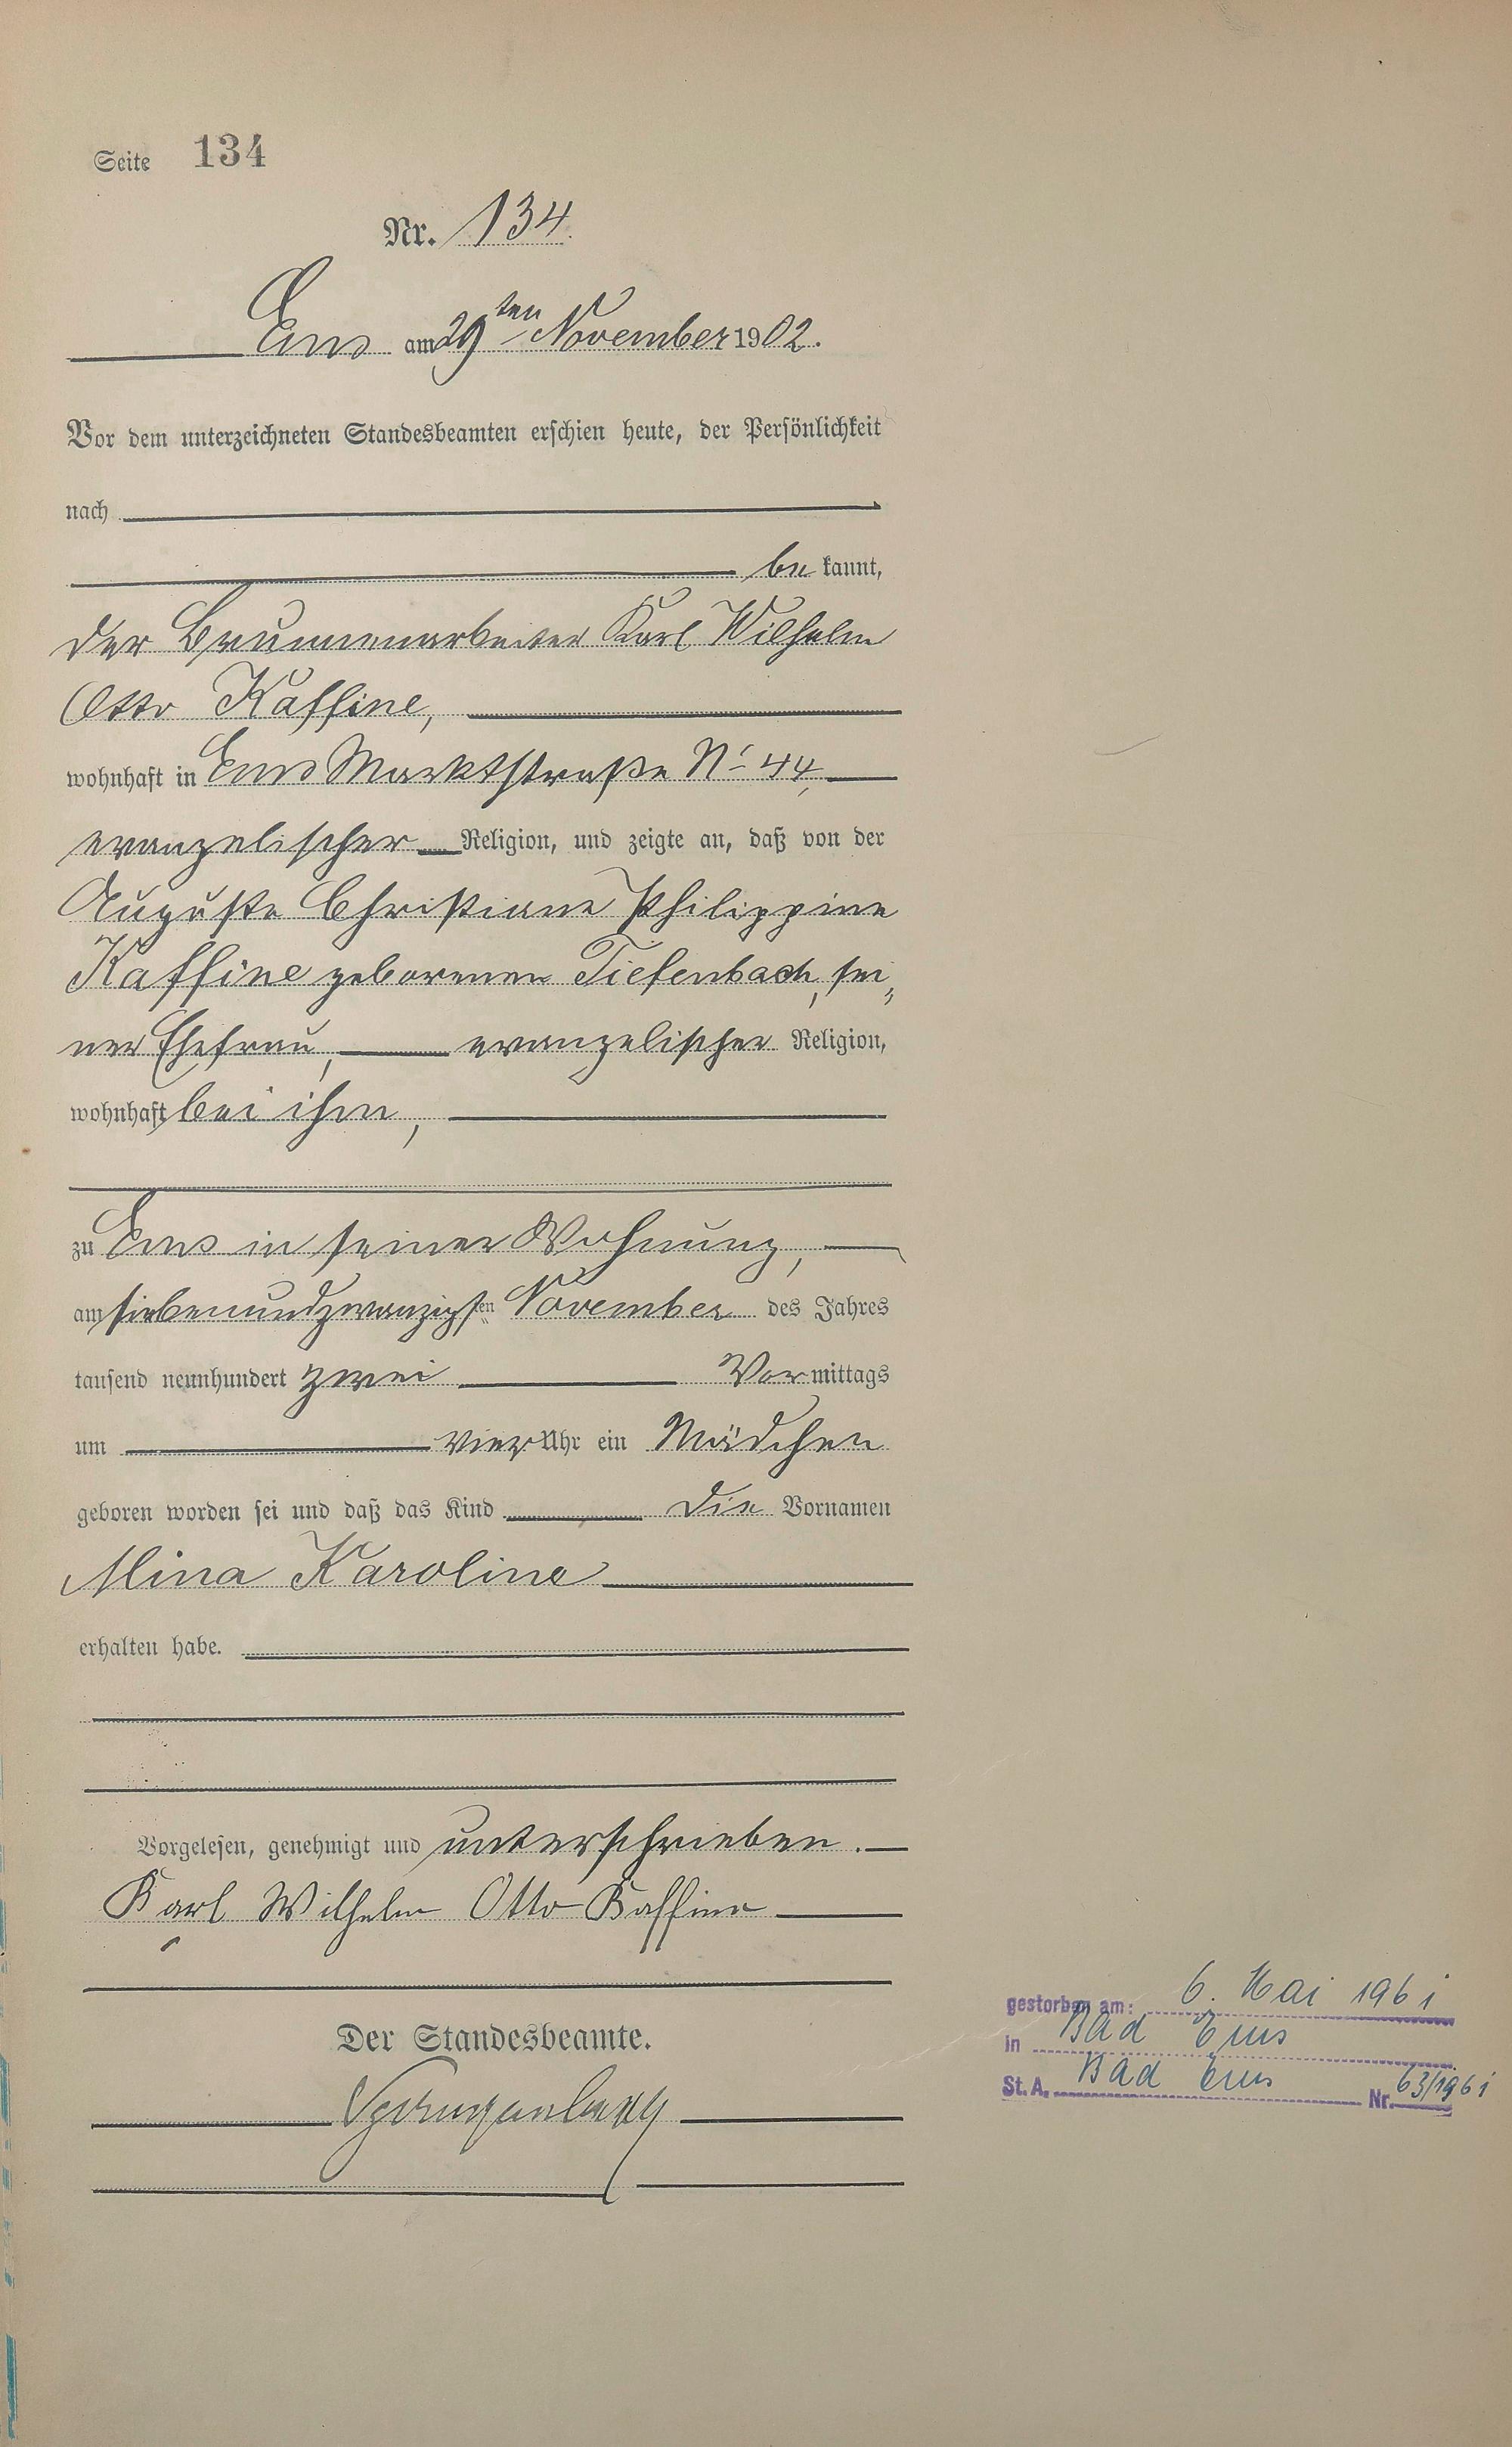 Seite 134
Nr. 134.
Ems am 29ten November 1902.
Vor dem unterzeichneten Standesbeamten erschien heute, der Persönlichkeit
nach
be kannt,
der Brunnenarbeiter Karl Wilhelm
Otto Kaffine,
wohnhaft in Ems Marktstraße Nr 44,
evangelischer Religion, und zeigte an, daß von der
Auguste Christiane Philippine
Kaffine geborenen Tiefenbach, sei„
ner Ehefrau, evangelischer Religion,
wohnhaft bei ihm,
zu Ems in seiner Wohnung,
am siebenundzwanzigsten November des Jahres
tausend neunhundert zwei Vormittags
um vier Uhr ein Mädchen
geboren worden sei und daß das Kind die Vornamen
Mina Karoline
erhalten habe.
Vorgelesen, genehmigt und unterschrieben.
Karl Wilhelm Otto Kaffine
Der Standesbeamte.
gestorben am: 6. Mai 1961
in Bad Ems
St.A. Bad Ems Nr. 63/1961